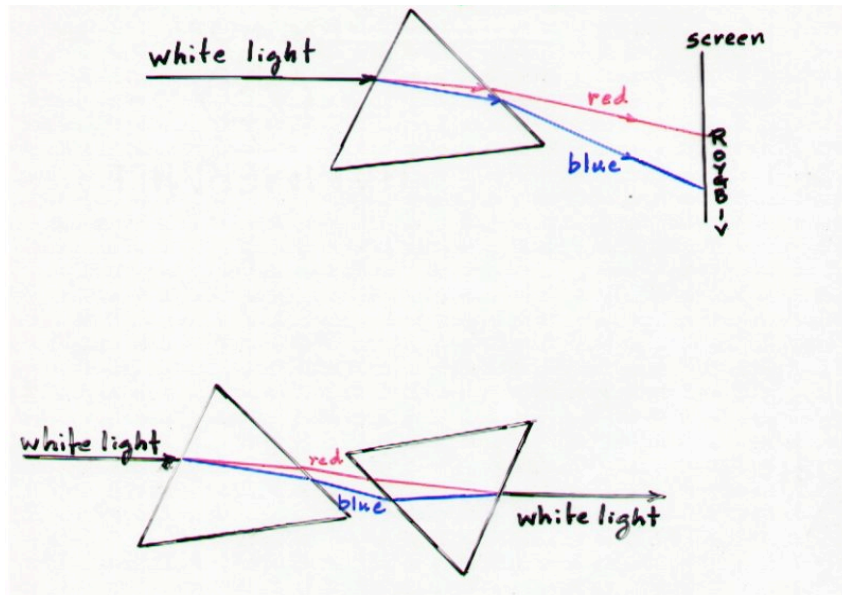 white light
screen
red
blue
ROYGBIV
white light
red
blue
white light